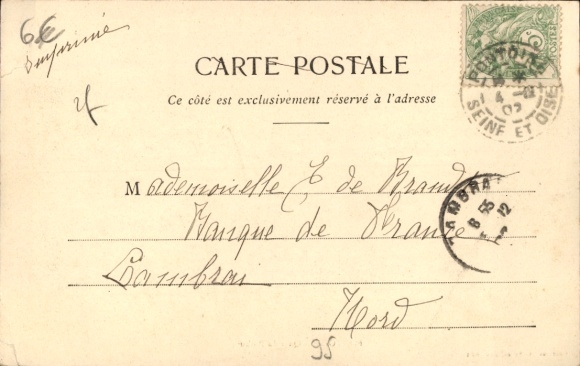 6€
Imprimé
CARTE POSTALE
Ce côté est exclusivement réservé à l'adresse
PONTOISE
4
02
SEINE ET OISE
Mademoiselle E de Brandt
CAMBRAI
8 55
12
Banque de France
Cambrai
Nord
95